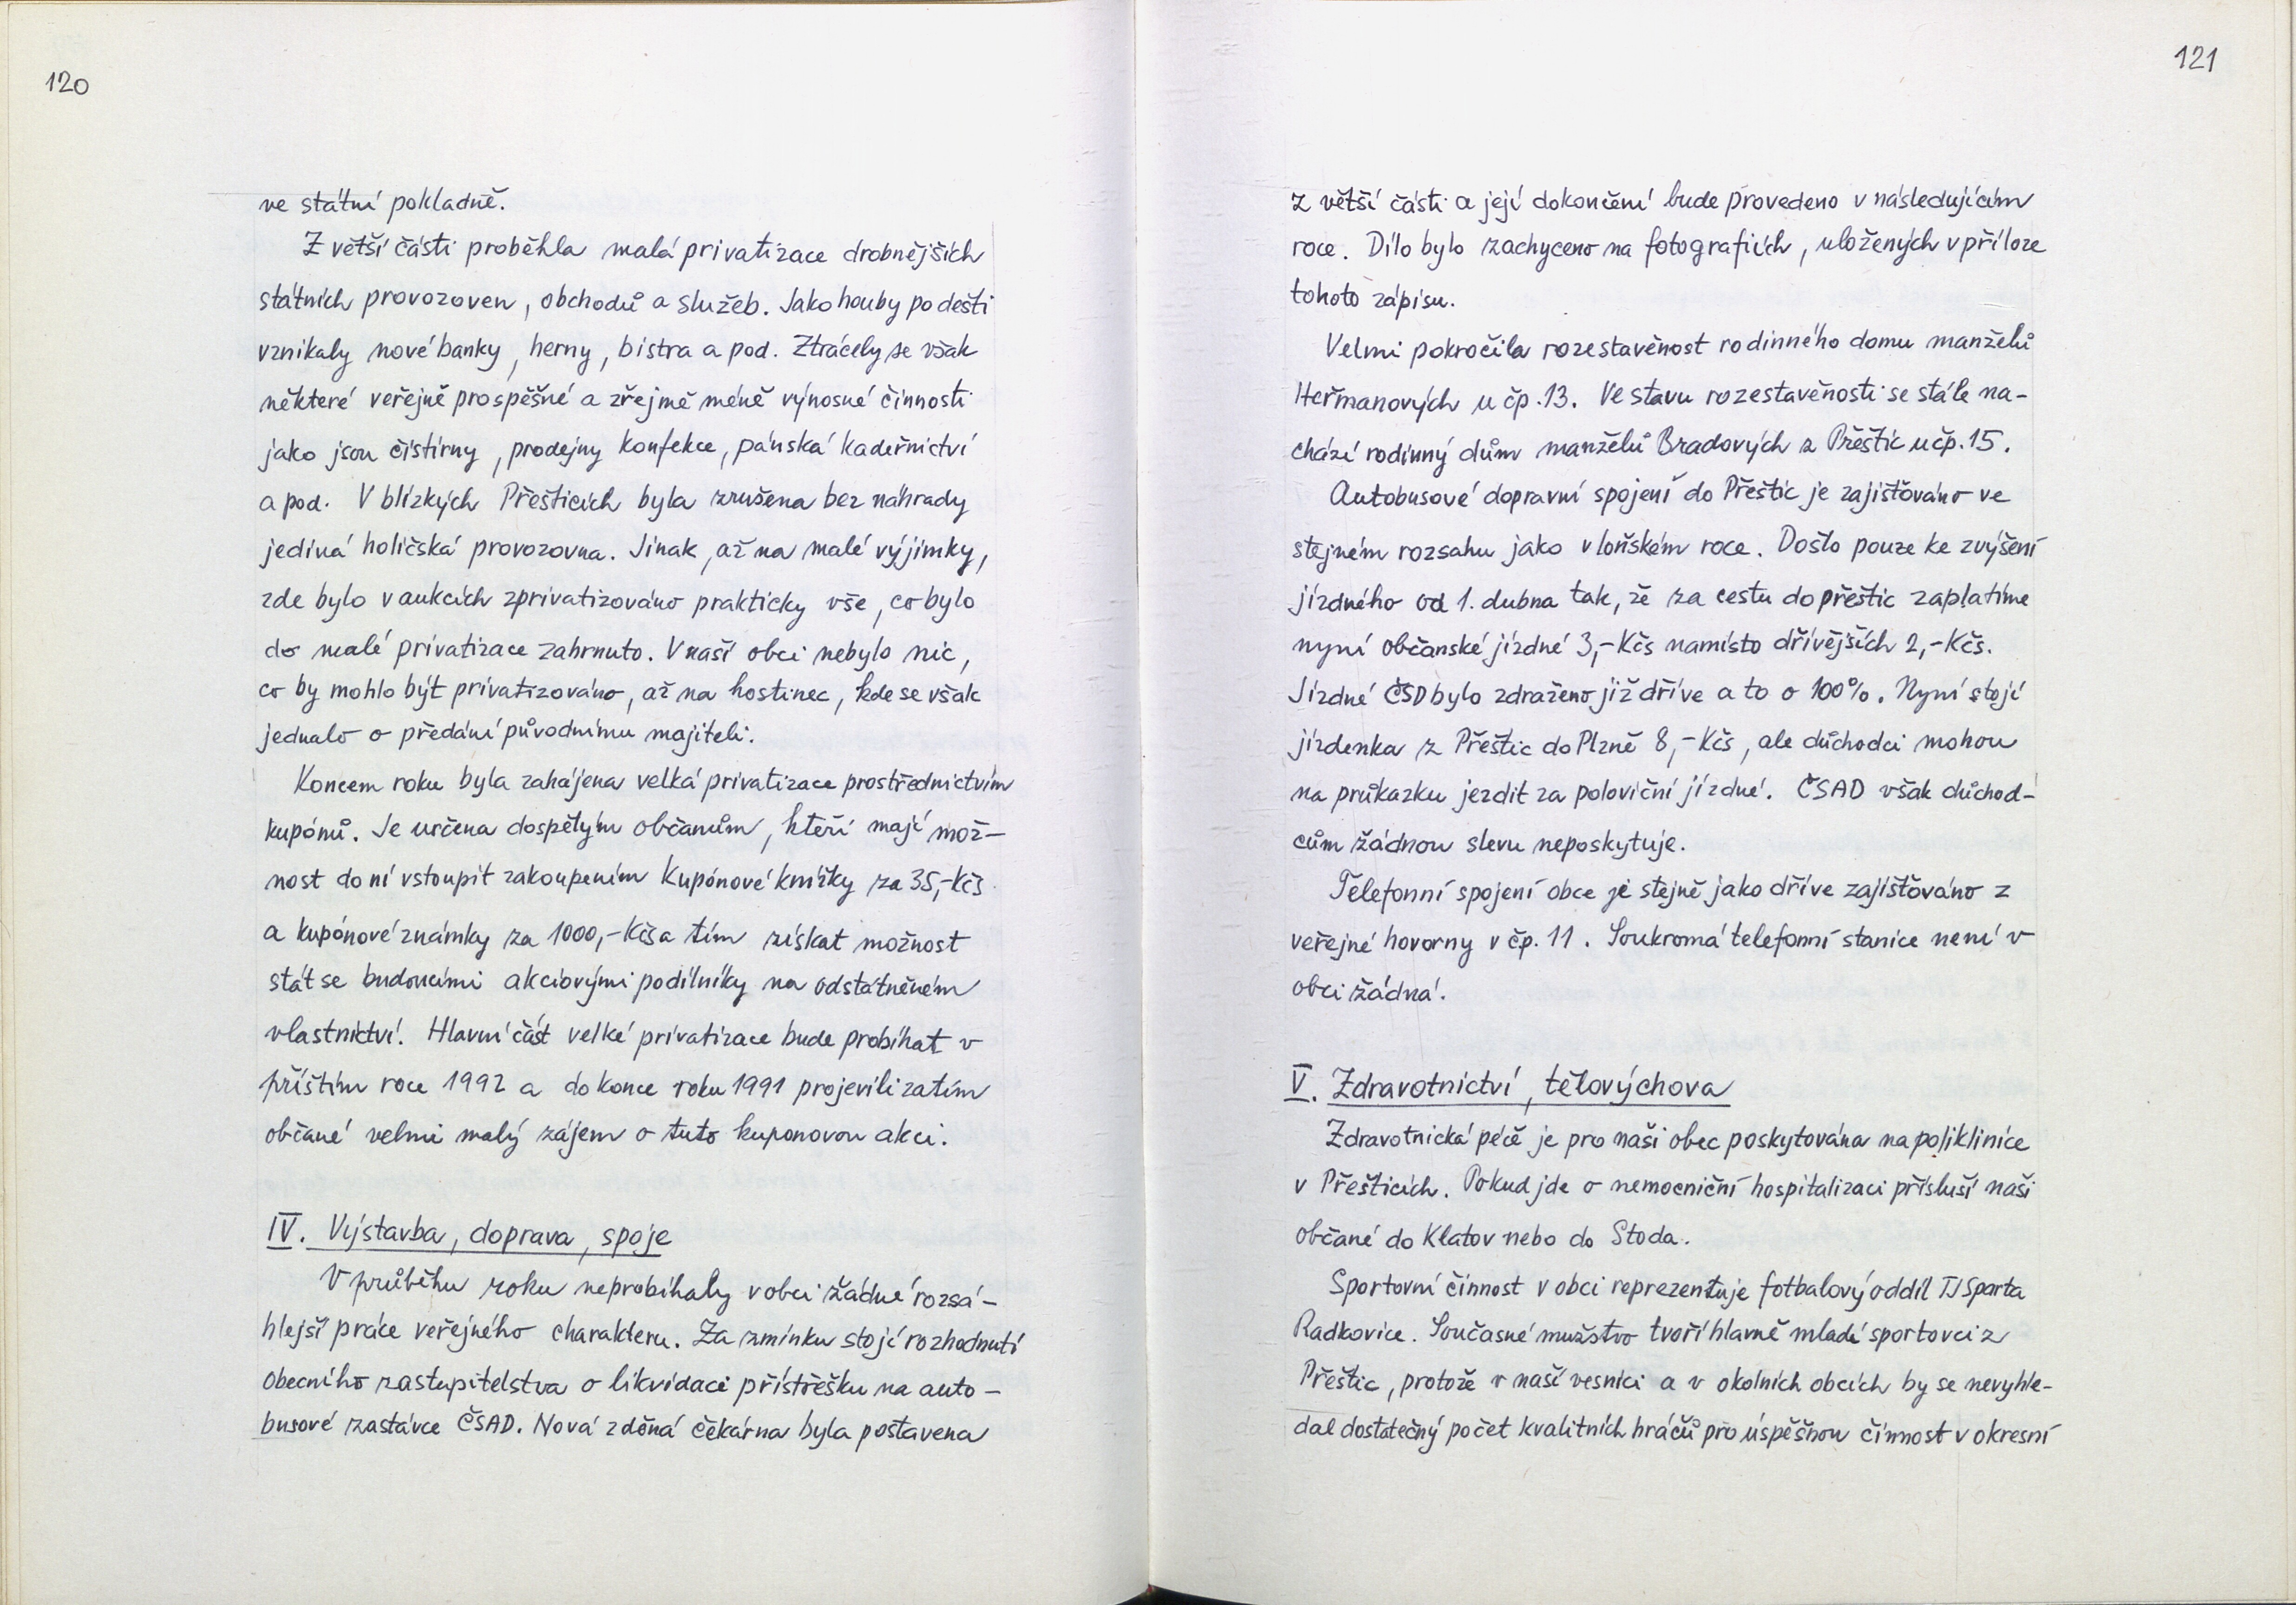 120
ve státní pokladně.
Z větší části proběhla malá privatizace drobnějších
státních provozoven, obchodů a služeb. Jako houby po dešti
vznikaly nové banky, herny, bistra a pod. Ztrácely se však
některé veřejně prospěšné a zřejmě méně výnosné činnosti
jako jsou čistírny, prodejny konfekce, pánská kadeřnictví
a pod. V blízkých Přešticích byla zrušena bez náhrady
jediná holičská provozovna. Jinak, až na malé výjimky,
zde bylo v aukcích zprivatizováno prakticky vše, co bylo
do malé privatizace zahrnuto. V naší obci nebylo nic,
co by mohlo být privatizováno, až na hostinec, kde se však
jednalo o předání původnímu majiteli.
Koncem roku byla zahájena velká privatizace prostřednictvím
kupónů. Je určena dospělým občanům, kteří mají mož-
nost do ní vstoupit zakoupením kupónové knížky za 35,-Kčs
a kupónové známky za 1000,-Kčs a tím získat možnost
stát se budoucími akciovými podílníky na odstátněném
vlastnictví. Hlavní část velké privatizace bude probíhat v
příštím roce 1992 a do konce roku 1991 projevili zatím
občané velmi malý zájem o tuto kuponovou akci.
IV. Výstavba, doprava, spoje
V průběhu roku neprobíhaly v obci žádné rozsá-
hlejší práce veřejného charakteru. Za zmínku stojí rozhodnutí
obecního zastupitelstva o likvidaci přístřešku na auto-
busové zastávce ČSAD. Nová zděná čekárna byla postavena
121
z větší části a její dokončení bude provedeno v následujícím
roce. Dílo bylo zachyceno na fotografiích, uložených v příloze
tohoto zápisu.
Velmi pokročila rozestavěnost rodinného domu manželů
Heřmanových u čp. 13. Ve stavu rozestavěnosti se stále na-
chází rodinný dům manželů Bradových z Přeštic u čp. 15.
Autobusové dopravní spojení do Přeštic je zajišťováno ve
stejném rozsahu jako v loňském roce. Došlo pouze ke zvýšení
jízdného od 1. dubna tak, že za cestu do přeštic zaplatíme
nyní občanské jízdné 3,-Kčs namísto dřívějších 2,-Kčs.
Jízdné ČSD bylo zdraženo již dříve a to o 100%. Nyní stojí
jízdenka z Přeštic do Plzně 8,-Kčs, ale důchodci mohou
na průkazku jezdit za poloviční jízdné. ČSAD však důchod-
cům žádnou slevu neposkytuje.
Telefonní spojení obce je stejně jako dříve zajišťováno z
veřejné hovorny v čp. 11. Soukromá telefonní stanice není v
obci žádná.
V. Zdravotnictví, tělovýchova
Zdravotnická péče je pro naši obec poskytována na poliklinice
v Přešticích. Pokud jde o nemocniční hospitalizaci přísluší naši
občané do Klatov nebo do Stoda.
Sportovní činnost v obci reprezentuje fotbalový oddíl TJ Sparta
Radkovice. Současné mužstvo tvoří hlavně mladí sportovci z
Přeštic, protože v naší vesnici a v okolních obcích by se nevyhle-
dal dostatečný počet kvalitních hráčů pro úspěšnou činnost v okresní